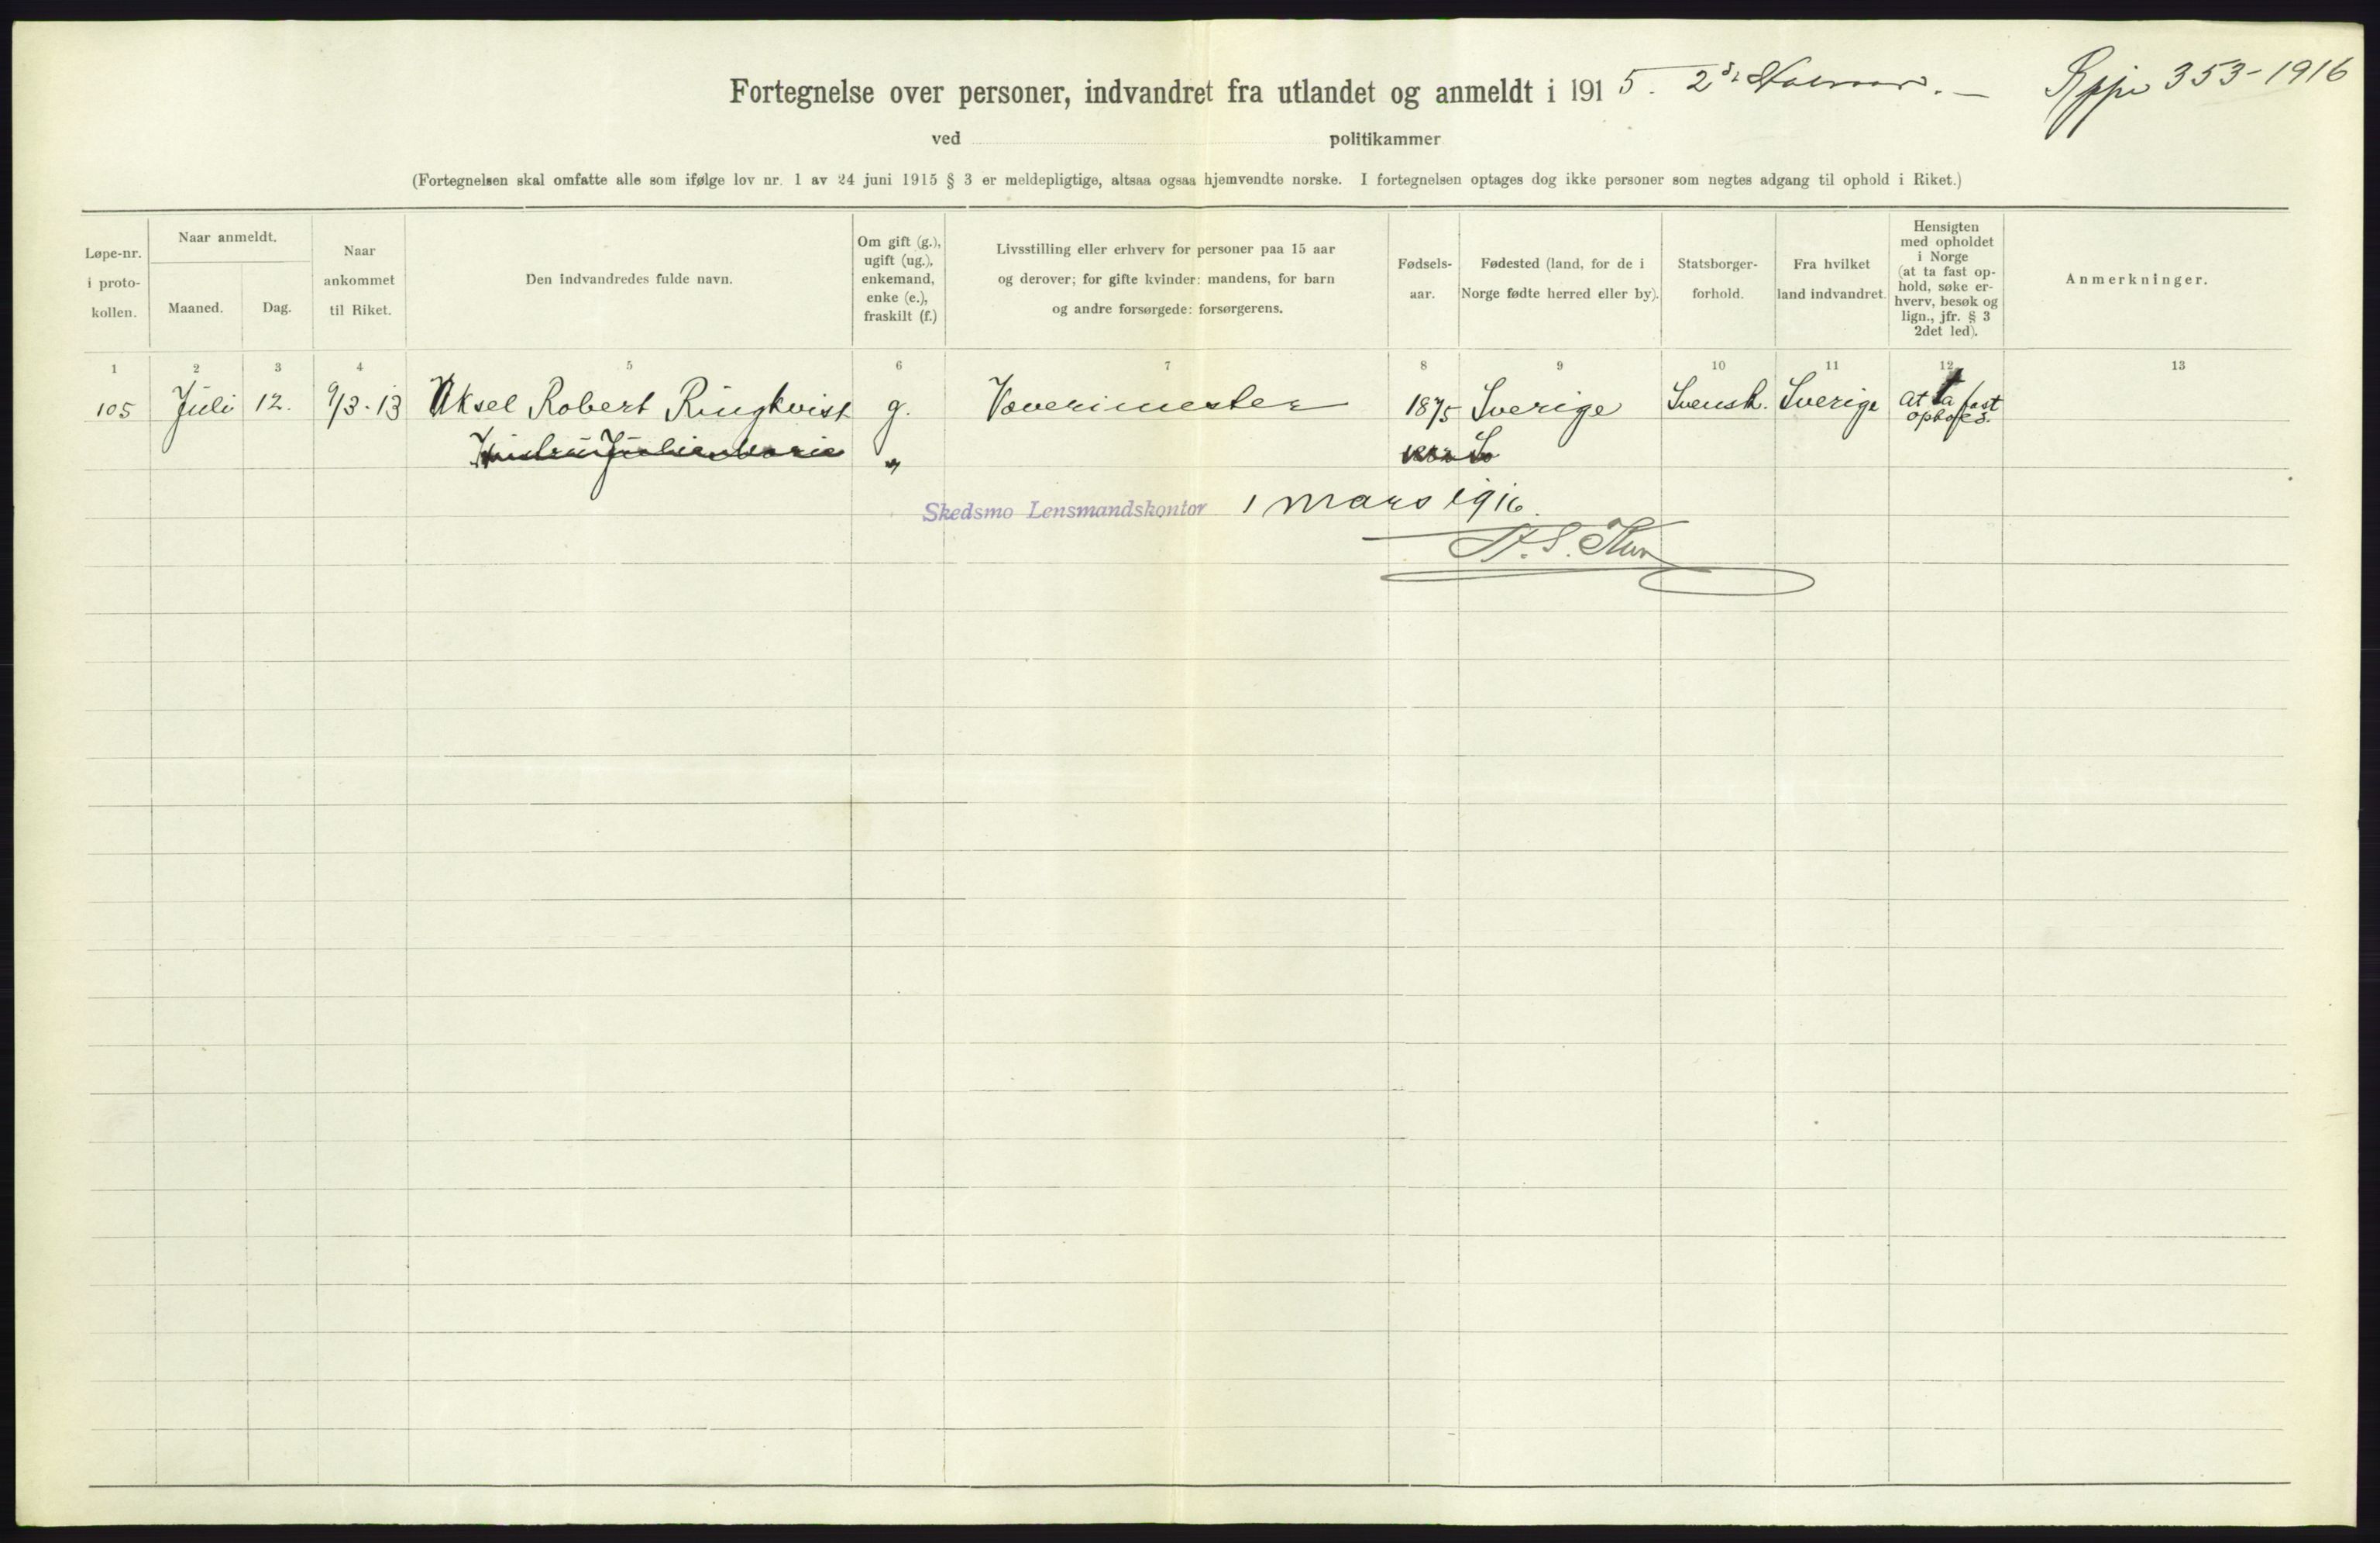 Fortegnelse over personer, indvandret fra utlandet og anmeldt i 1915. 2d Halvaar. —
353-1916
ved politikammer
(Fortegnelsen skal omfatte alle som ifølge lov nr. 1 av 24 juni 1915 § 3 er meldepligtige, altsaa ogsaa hjemvendte norske. I fortegnelsen optages dog ikke personer som negtes adgang til ophold i Riket.)
Løpe-nr.
i proto-
kollen.
Naar anmeldt.
Maaned.
Dag.
Naar
ankommet
til Riket.
Den indvandredes fulde navn.
Om gift (g.),
ugift (ug.),
enkemand,
enke (e.),
fraskilt (f.)
Livsstilling eller erhverv for personer paa 15 aar
og derover; for gifte kvinder: mandens, for barn
og andre forsørgede: forsørgerens.
Fødsels-
aar.
Fødested (land, for de i
Norge fødte herred eller by).
Statsborger-
forhold.
Fra hvilket
land indvandret.
Hensigten
med opholdet
i Norge
(at ta fast op-
hold, søke er-
hverv, besøk og
lign., jfr. § 3
2det led).
Anmerkninger.
1 2 3 4 5 6 7 8 9 10 11 12 13
105 Juli 12. 9/3-13 Aksel Robert Ringkvist g. Væverimester 1875 Sverige Svensk. Sverige at ta fast
"
Skedsmo Lensmandskontor 1 mars 1916.